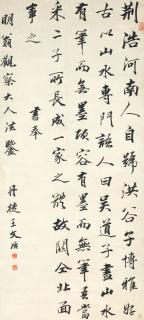 荊浩河南人自號洪谷子博雅好
古以山水專門語人曰吳道子畫山水
有筆而無墨項容有墨而無筆吾當
采二子所長成一家之體故關仝北面
事之
書奉
明翁觀察大人法鑒
丹徒王文治